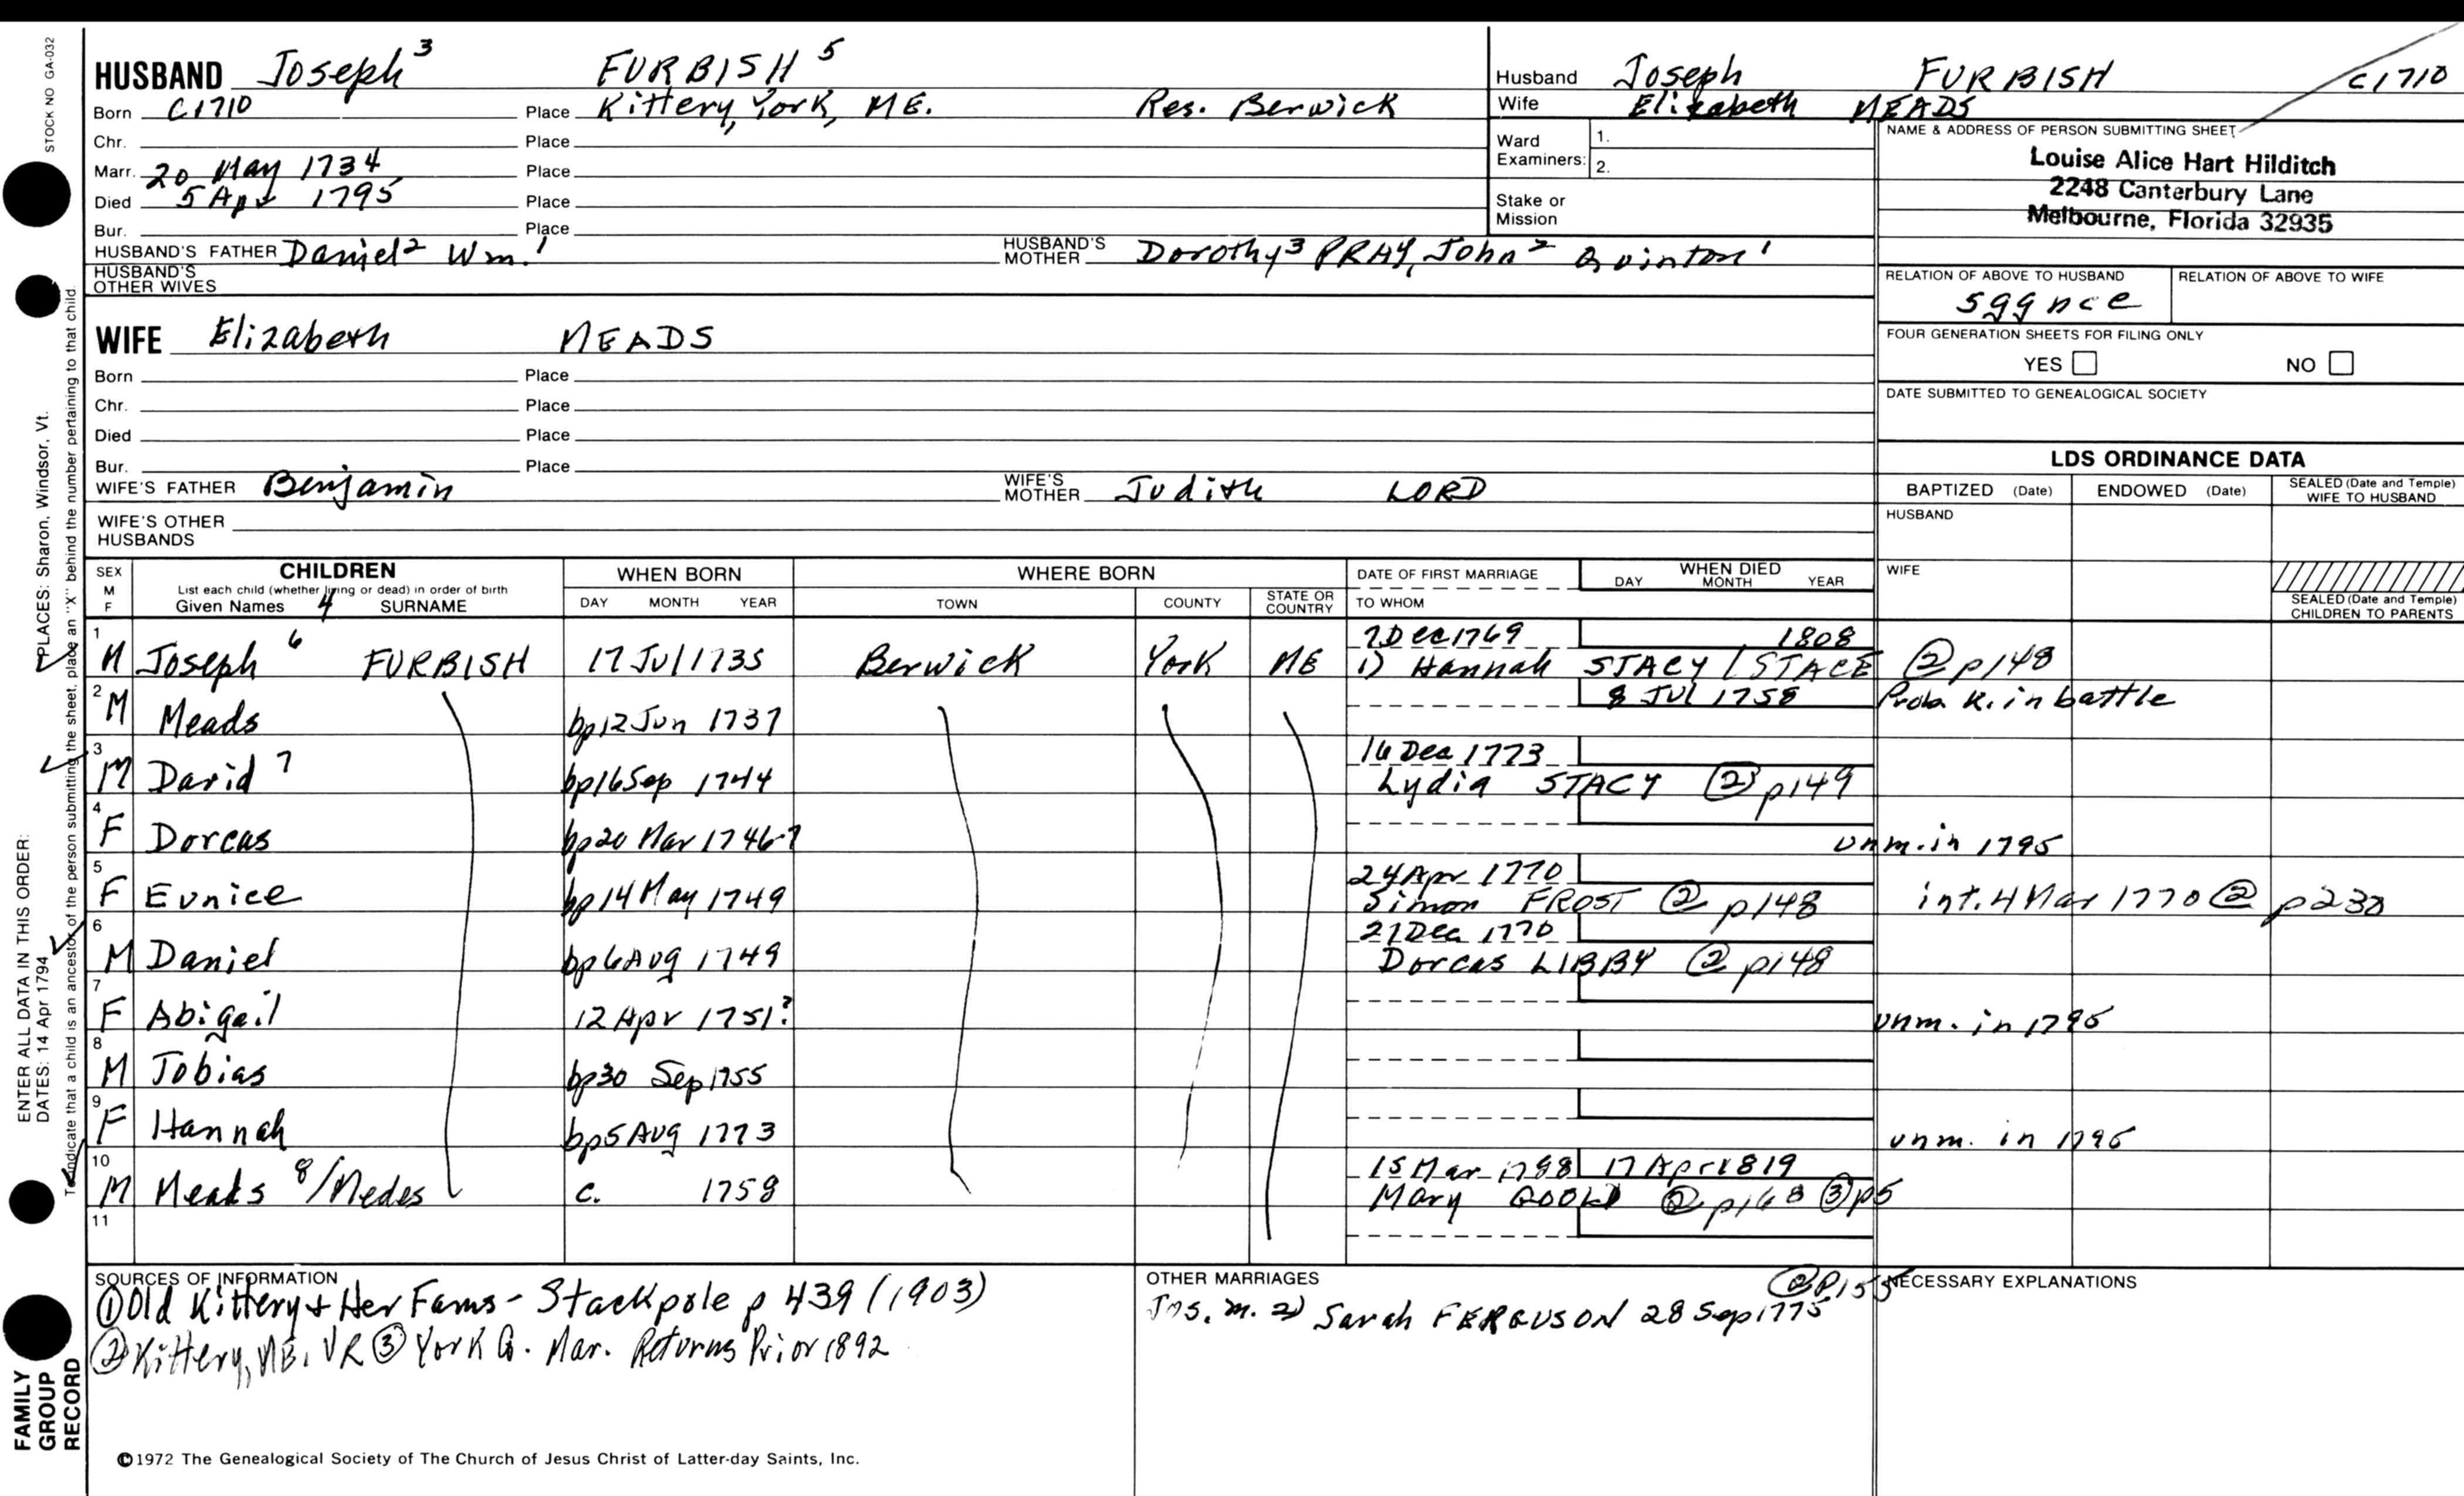 STOCK NO GA-032
HUSBAND Joseph 3 FURBISH 5
Born C1710 Place Kittery, York, ME. Res. Berwick
Chr. Place
Marr. 20 May 1734 Place
Died 5 Apr 1795 Place
Bur. Place
HUSBAND'S FATHER Daniel 2 Wm. 1 HUSBAND'S MOTHER Dorothy 3 PRAY, John 2 Quinton 1
HUSBAND'S OTHER WIVES
Husband Joseph FURBISH C1710
Wife Elizabeth MEADS
Ward Examiners: 1.
2.
Stake or Mission
NAME & ADDRESS OF PERSON SUBMITTING SHEET
Louise Alice Hart Hilditch
2248 Canterbury Lane
Melbourne, Florida 32935
RELATION OF ABOVE TO HUSBAND RELATION OF ABOVE TO WIFE
5ggnce
FOUR GENERATION SHEETS FOR FILING ONLY
YES NO
DATE SUBMITTED TO GENEALOGICAL SOCIETY
WIFE Elizabeth MEADS
Born Place
Chr. Place
Died Place
Bur. Place
WIFE'S FATHER Benjamin WIFE'S MOTHER Judith LORD
WIFE'S OTHER HUSBANDS
LDS ORDINANCE DATA
BAPTIZED (Date) ENDOWED (Date) SEALED (Date and Temple) WIFE TO HUSBAND
HUSBAND
WIFE
SEALED (Date and Temple) CHILDREN TO PARENTS
SEX M F
CHILDREN
List each child (whether living or dead) in order of birth
Given Names 4 SURNAME
WHEN BORN
DAY MONTH YEAR
WHERE BORN
TOWN COUNTY STATE OR COUNTRY
DATE OF FIRST MARRIAGE
TO WHOM
WHEN DIED
DAY MONTH YEAR
7 Dec 1769 1808
1 M Joseph 6 FURBISH 17 Jul 1735 Berwick York ME 1) Hannah STACY / STACE ② p148
8 JUL 1758 Prob. K. in battle
2 M Meads bp 12 Jun 1737
16 Dec 1773
3 M David 7 bp 16 Sep 1744 Lydia STACY ② p149
4 F Dorcas bp 20 Mar 1746-7 unm. in 1795
24 Apr 1770
5 F Eunice bp 14 May 1749 Simon FROST ② p148 int. 4 Mar 1770 ② p230
27 Dec 1770
6 M Daniel bp 6 Aug 1749 Dorcas LIBBY ② p148
7 F Abigail 12 Apr 1751? unm. in 1795
8 M Tobias bp 30 Sep 1755
9 F Hannah bp 5 Aug 1773 unm. in 1795
15 Mar 1788 17 Apr 1819
10 M Meads 8 / Medes c. 1758 Mary GOOLD ② p168 ③ p5
11
SOURCES OF INFORMATION
① Old Kittery & Her Fams - Stackpole p 439 (1903)
② Kittery, ME. VR ③ York Co. Mar. Returns Prior 1892
OTHER MARRIAGES
② p155
Jos. m. 2) Sarah FERGUSON 28 Sep 1775
NECESSARY EXPLANATIONS
©1972 The Genealogical Society of The Church of Jesus Christ of Latter-day Saints, Inc.
PLACES: Sharon, Windsor, Vt.
ENTER ALL DATA IN THIS ORDER:
DATES: 14 Apr 1794
To indicate that a child is an ancestor of the person submitting the sheet, place an "X" behind the number pertaining to that child.
FAMILY GROUP RECORD